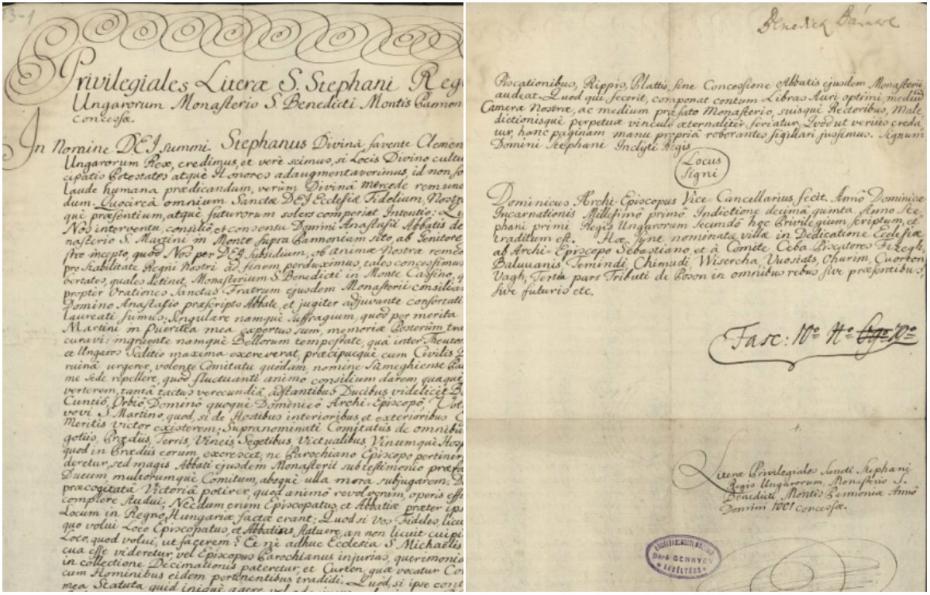 Privilegiales Literæ S. Stephani Reg
Ungarorum Monasterio S. Benedicti Montis Pannon
concessæ.
In Nomine DEI Summi Stephanus Divinâ favente Clemen
Ungarorum Rex, credimus, et verè scimus, si Locis Divino cultu
cipatis Potestates atque Honores adaugmentaverimus, id non so
laude humana prædicandum, verùm Divinâ mercede remune
dum. Quocirca omnium Sanctæ DEI Ecclesiæ Fidelium, Nostr
qui præsentium, atque futurorum solers comperiat Intentio:
Nos interventu, consilio, et consensu Domini Anastasii Abbatis de
nasterio S. Martini in Monte supra Pannoniam sito, ab Genitore
stro incepto, quod Nos per DEI subsidium, ob animæ Nostræ remed
pro stabilitate Regni Nostri ad finem perduximus, tales concessimus
vertates, quales detinet Monasterium S. Benedicti in Monte Cassino, q
propter Orationes Sanctas Fratrum ejusdem Monasterii consilian
Domino Anastasio præscripto Abbate, et jugiter adjuvante confortati
Laureati sumus: Singulare namque suffragium, quod per merita
Martini in Pueritia mea expertus sum, memoriæ Posterum tra
curavi: ingruente namque Bellorum tempestate, quâ inter Theuton
et Ungaros Seditio maxima excreverat, præcipuèque cum Civilis
ruina urgerer, volente Comitatu quodam, nomine Sumeghiense Pa
me Sede repellere, quod fluctuanti animo consilium darem, quaque
verterem, tantâ tactus verecundiâ, adstantibus Ducibus videlicet
Cuntio, Orbio, Domino quoque Dominico Archi-Episcopo, Vot
vovi S. Martino, quod, si de Hostibus interioribus et exterioribus
Meritis victor existerem: Supranominati Comitatûs de omnibus
gotiis, Prædiis, Terris, Vineis, Segetibus, Vectigalibus, Vinumque Hosp
quod in Prædiis eorum excresceret, ne Parochiano Episcopo pertiner
deretur, sed magis Abbati ejusdem Monasterii sub testimonio præfa
Ducum, multorumque Comitum, absque ulla mora subjugarem:
præcogitatâ Victoriâ potirer, quod animo revolveram, operis effi
complere studui. Necdum enim Episcopatus et Abbatiæ præter ips
Locum in Regno Hungariæ factæ erant: Quod si vos Fideles licu
quo volui Loco Episcopatus, et Abbatias statuere, an non licuit cuipi
Loco, quod volui, ut facerem? Et ni adhuc Ecclesia S. Michaëlis
cua esse videretur, vel Episcopus Parochianus injurias, querimoni
in collectione Decimationis pateretur, et Curten, quæ vocatur
cum Hominibus eidem pertinentibus tradidi. Quod, si ipse cont
mea Statuta quid iniquè agere vel
33-1
Piscationibus, Rippis, Plattis, sine Concessione Abbatis ejusdem Monasterii
audeat. Quod qui fecerit, componat centum Libras Auri optimi, medium
Cameræ Nostræ, ac medium præfato Monasterio, suisque Rectoribus, Male
dictionisque perpetuæ vinculo æternaliter feriatur. Quod ut verius creda
tur, hanc paginam manu propriâ roborantes sigillari jussimus. Signum
Domini Stephani Inclyti Regis
Locus
Signi
Dominicus Archi-Episcopus Vice Cancellarius, fecit. Annô Dominicæ
Incarnationis Millesimo primo, Indictione decima quinta, Anno Ste
phani primi Regis Ungarorum secundo hoc Privilegium scriptum, et
traditum est. Hæ sunt nominatæ villæ in Dedicatione Ecclesiæ
ab Archi-Episcopo Sebastiano et à Comite Ceba
Temirdi, Chimudi, Wisercha, Vuostats, Churim,
Vagh, Tertia pars Tributi de Poson in omnibus rebus sive præsentibus,
sive futuris etc.
Fasc: 10º Nº
Literæ Privilegiales Sancti Stephani
Regis Ungarorum, Monasterio S.
Benedicti Montis Pannonia Annô
Domini 1001 concessæ.